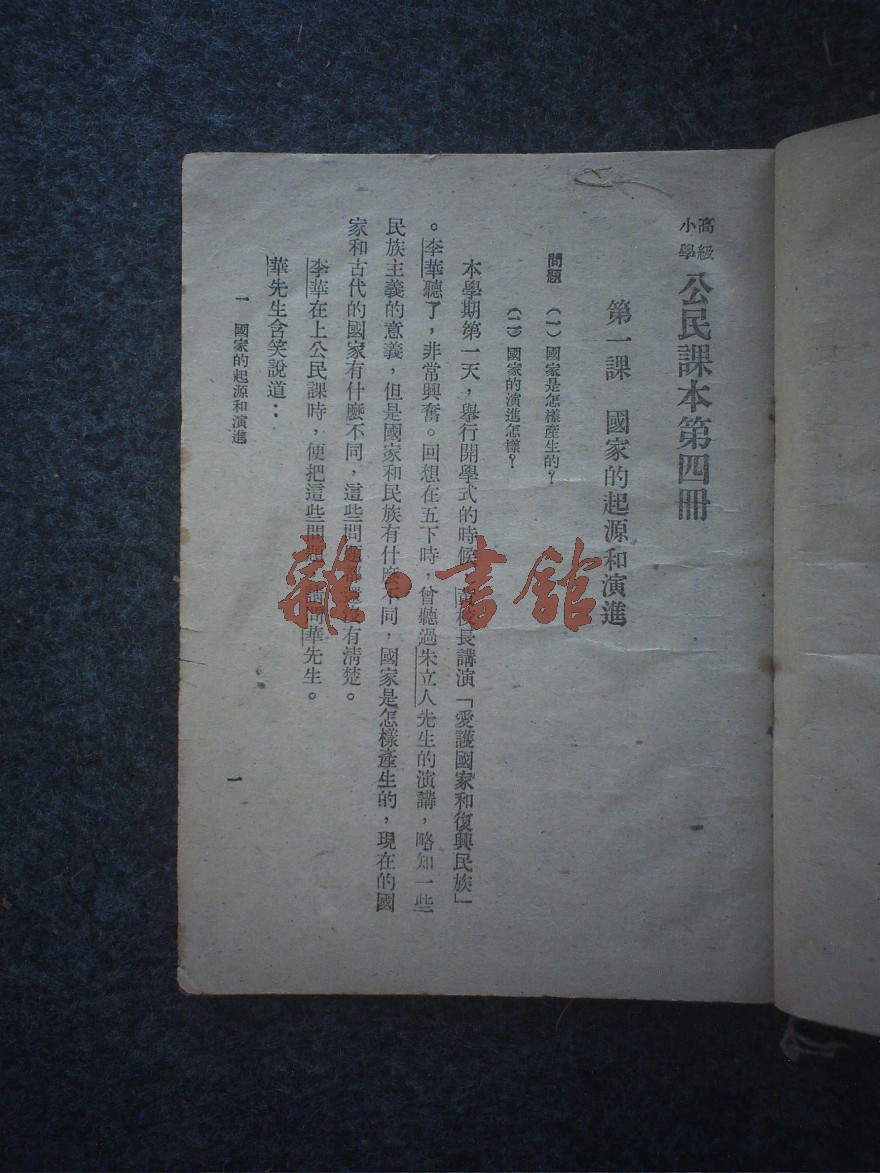 高級
小學
公民課本第四冊
第一課　國家的起源和演進
問題　(一)國家是怎樣產生的?
(二)國家的演進怎樣?
本學期第一天,舉行開學式的時候,校長講演「愛護國家和復興民族」
。李華聽了,非常興奮。回想在五下時,曾聽過朱立人先生的演講,略知一些
民族主義的意義,但是國家和民族有什麼不同,國家是怎樣產生的,現在的國
家和古代的國家有什麼不同,這些問題有清楚。
李華在上公民課時,便把這些問題請問華先生。
華先生含笑說道:
一　國家的起源和演進
一
雜·書館